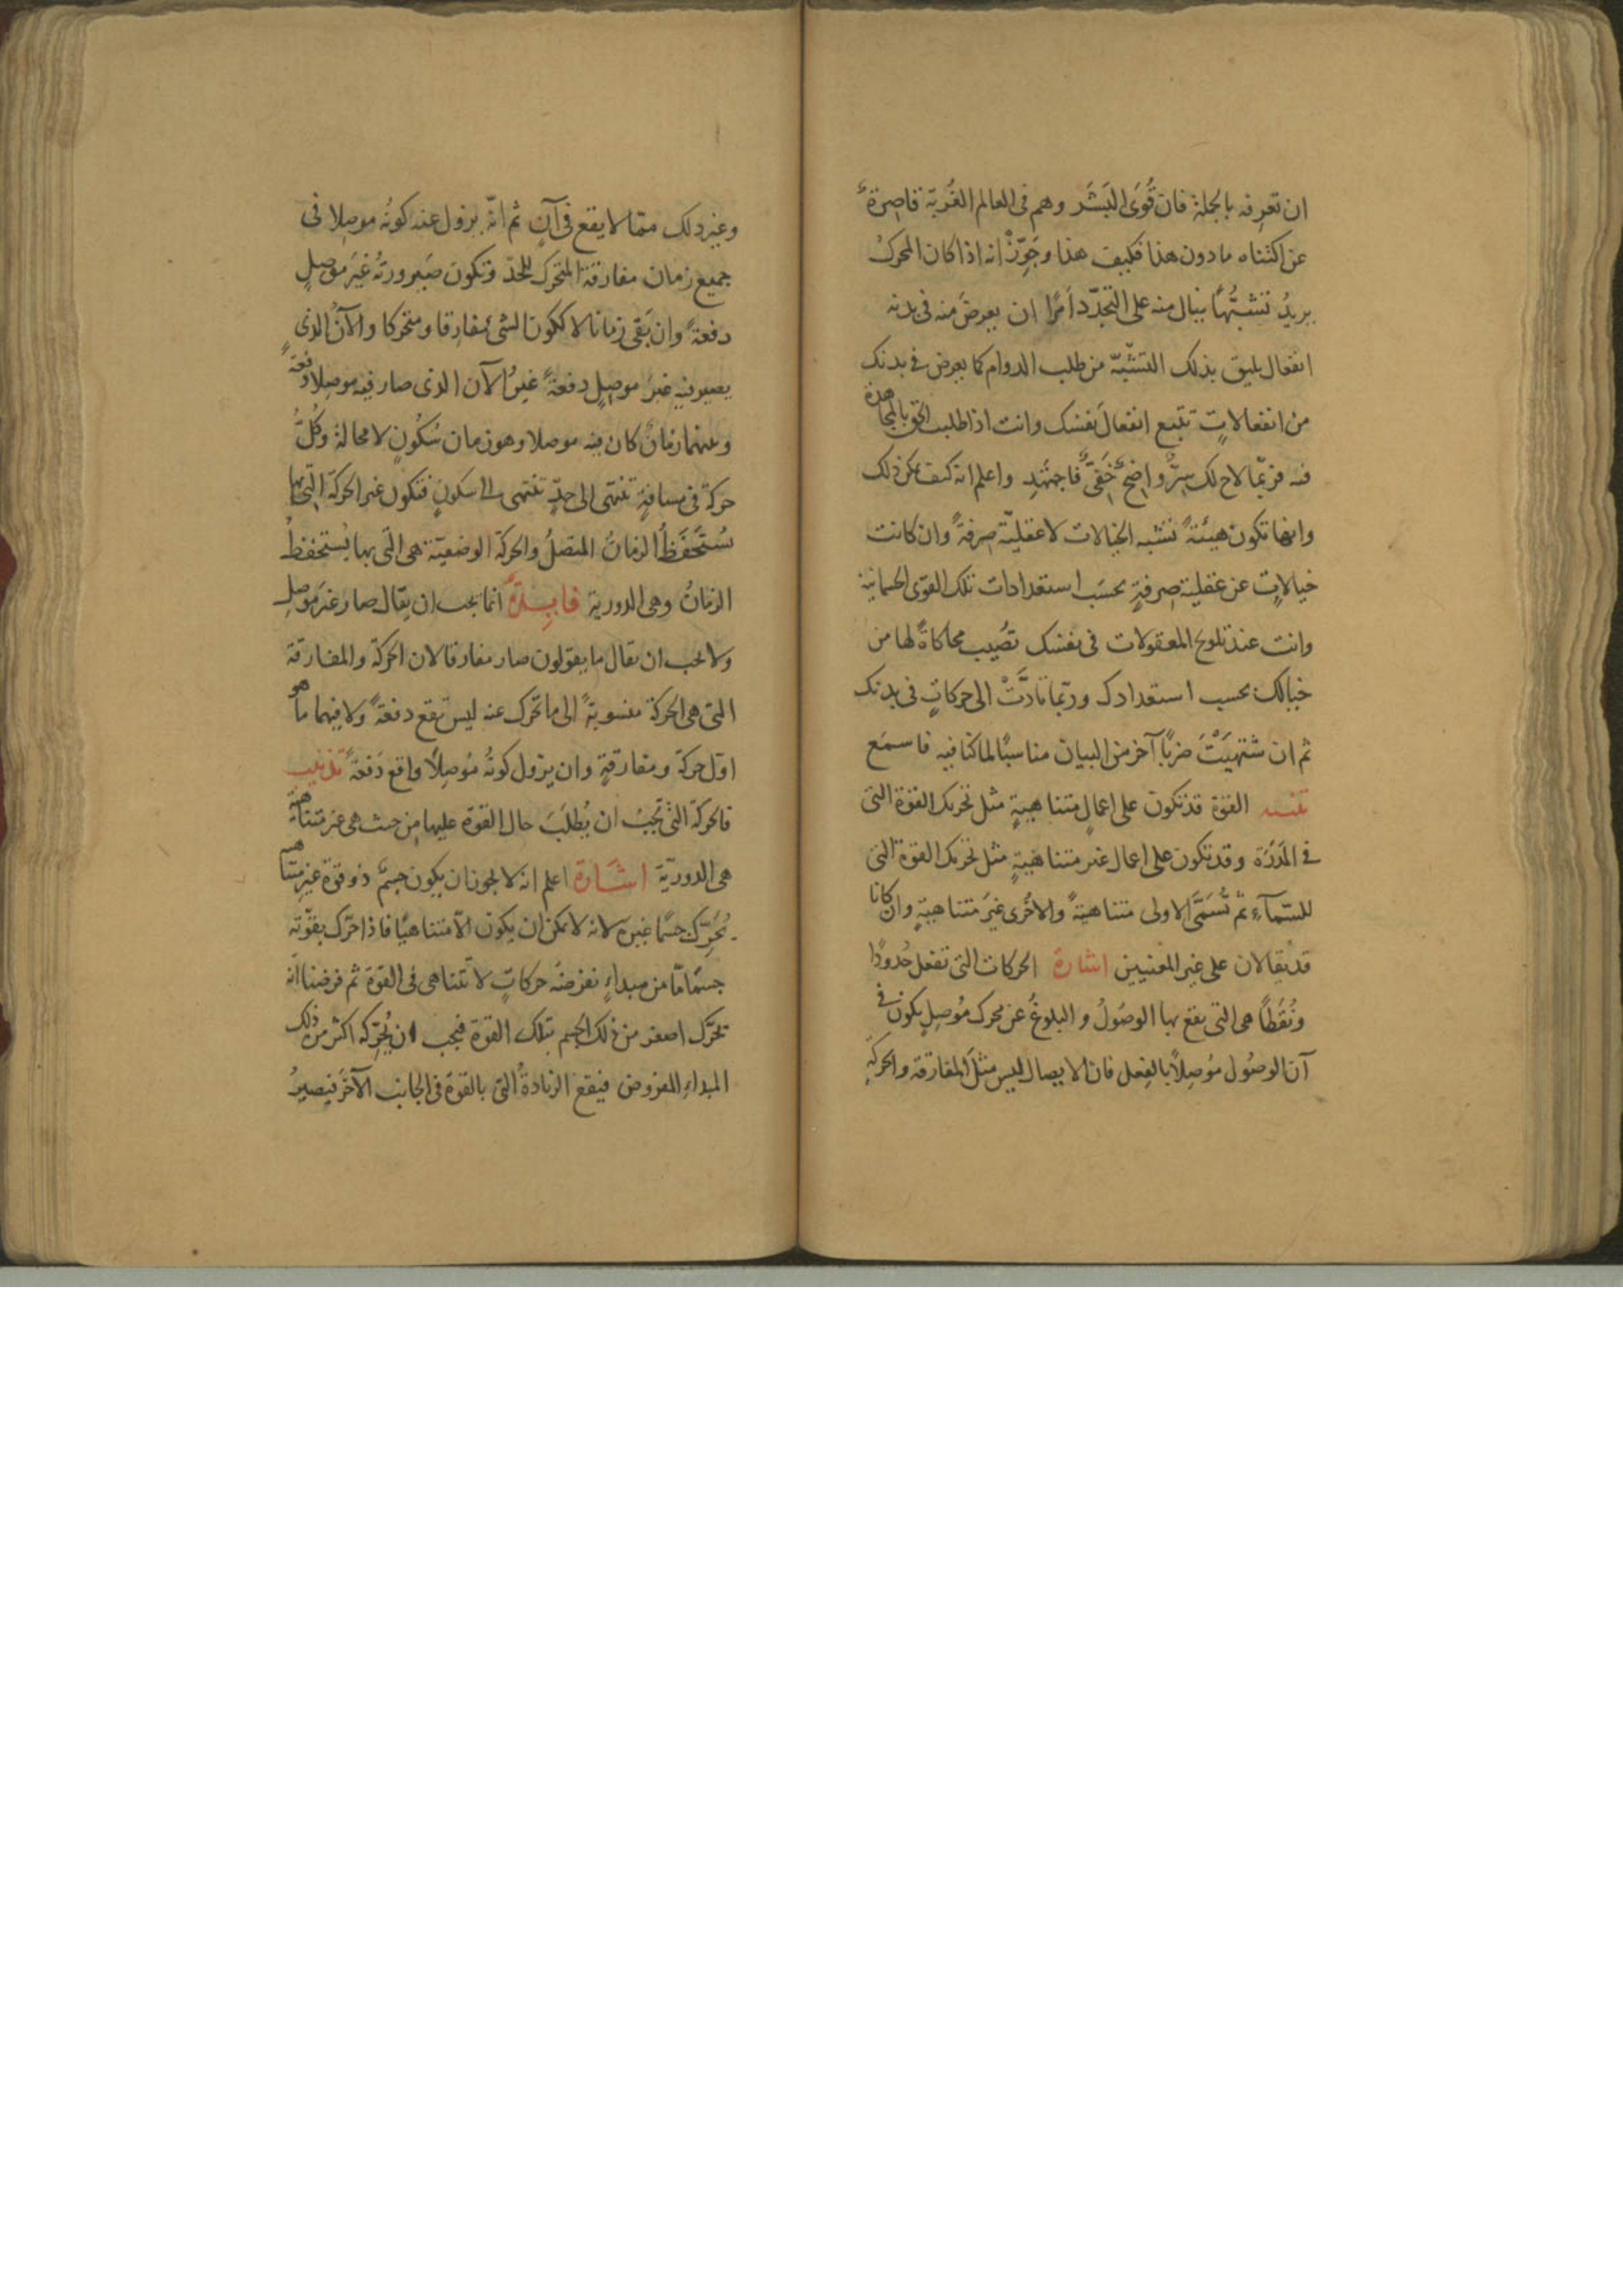 ان تعرفه بالجملة فان قُوَى البَشَر وهم فى العالم الغُربة قاصِرةٌ
عن اكتناه مادون هذا فكيف هذا وجَوِّزْ انه اذا كان المحركُ
يريدُ تشبُّهًا ينال منه على التجدّد اَمرًا ان يعرضَ منه فى بدنه
انفعال يليق بذلك التشبّه من طلب الدوام كما يعرض فى بدنك
من انفعالاتٍ تتبع انفعالَ نفسك وانت اذا طلبت الحق بالمجاهدة
فيه فربّما لاح لك سِرٌّ واضحٌ خَفَىٌّ فاجتَهِد واعلم انه كيف يمكن ذلك
وانها تكون هيئةً تشبه الخيالات لا عقليّة صِرفةً وان كانت
خيالاتٍ عن عقلية صِرفةٍ بحسَب استعدادات تلك القوى الجسمانية
وانت عند تلويح المعقولات فى نفسك تصُيب محاكاةً لها من
خيالك بحسب استعدادك وربّما تادَّتْ الى حركاتٍ فى بدنك
ثم ان شتهيَتْ ضربًا آخر من البيان مناسبًا لما كنا فيه فاسمَع
تنبيه القوة قد تكون على اعمالٍ متناهيةٍ مثل تحريك القوة التى
فى المَدَرَة وقد تكون على اعمال غير متناهيةٍ مثل تحريك القوة التى
للسّمآءِ ثم تُسَمَّى الاولى متناهيةً والاخُرى غيَر متناهيةٍ وان كانا
قد يُقالان على غير المعنيين اشارة الحركات التى تفعل حُدودًا
ونُقَطًا هى التى يقع بها الوصُولُ والبلوغُ عن محرك مُوصِلٍ يكون فى
آن الوصُول مُوصِلاً بالفِعل فان الايصال ليس مثلَ المفارقة والحركةِ
وغير ذلك ممّا لا يقع فى آنٍ ثم انّه يزول عنه كونُه موصِلا فى
جميع زمان مفارقة المتحرك للحدّ وتكون صَيرورتُه غيَر موصِلٍ
دفعةً وان بَقى زمانا لا ككون الشئ مفارِقا ومتحركا والآنُ الذى
يصير فيه غيرَ موصِلٍ دفعةً غيرُ الآن الذى صار فيه موصِلا دفعةً
وبينهما زمانٌ كان فيه موصلا وهو زمان سُكُونٍ لا محالة وكُلُّ
حركة فى مسافةٍ تنتهى الى حدٍّ تنتهى الى سكونٍ فتكون غير الحركة التى بها
يُسْتَحفَظُ الزمانُ المتصلُ والحركة الوضعيّة هى التى بها يُستحفظُ
الزمانُ وهى الدورية فايِدةٌ انما يجب ان يقال صار غيَر موصِلٍ
ولا يجب ان يقال ما يقولون صار مفارقا لان الحركة والمفارقة
التى هى الحركة منسوبةً الى ما تحرك عنه ليس تقع دفعةً ولا فيهما ما هو
اوّل حركة ومفارقةٍ وان يزول كونُه مُوصِلاً واقع دَفعةً تذنيب
فالحركة التى تجبُ ان يُطلَبَ حال القوة عليها مِن حيث هى غير متناهية
هى الدوريّة اشَارة اعلم انه لا يجوز ان يكون جسمٌ ذو قوة غيرِ متناهية
يُحَرِّك جسًما غيرَه لانه لا يمكن ان يكون الّا متناهيًا فاذا حرّك بقوّته
جسمًا مّا من مبداءٍ نفرضُه حركاتٍ لا تتناهى فى القوّة ثم فرضنا انّه
يحرّك اصغر من ذلك الجسم بتلك القوة فيجب ان يُحرّكه اكثر من ذلك
المبداءِ المفروض فيقع الزيادةُ التى بالقوة فى الجانب الآخَر فيصيرُ